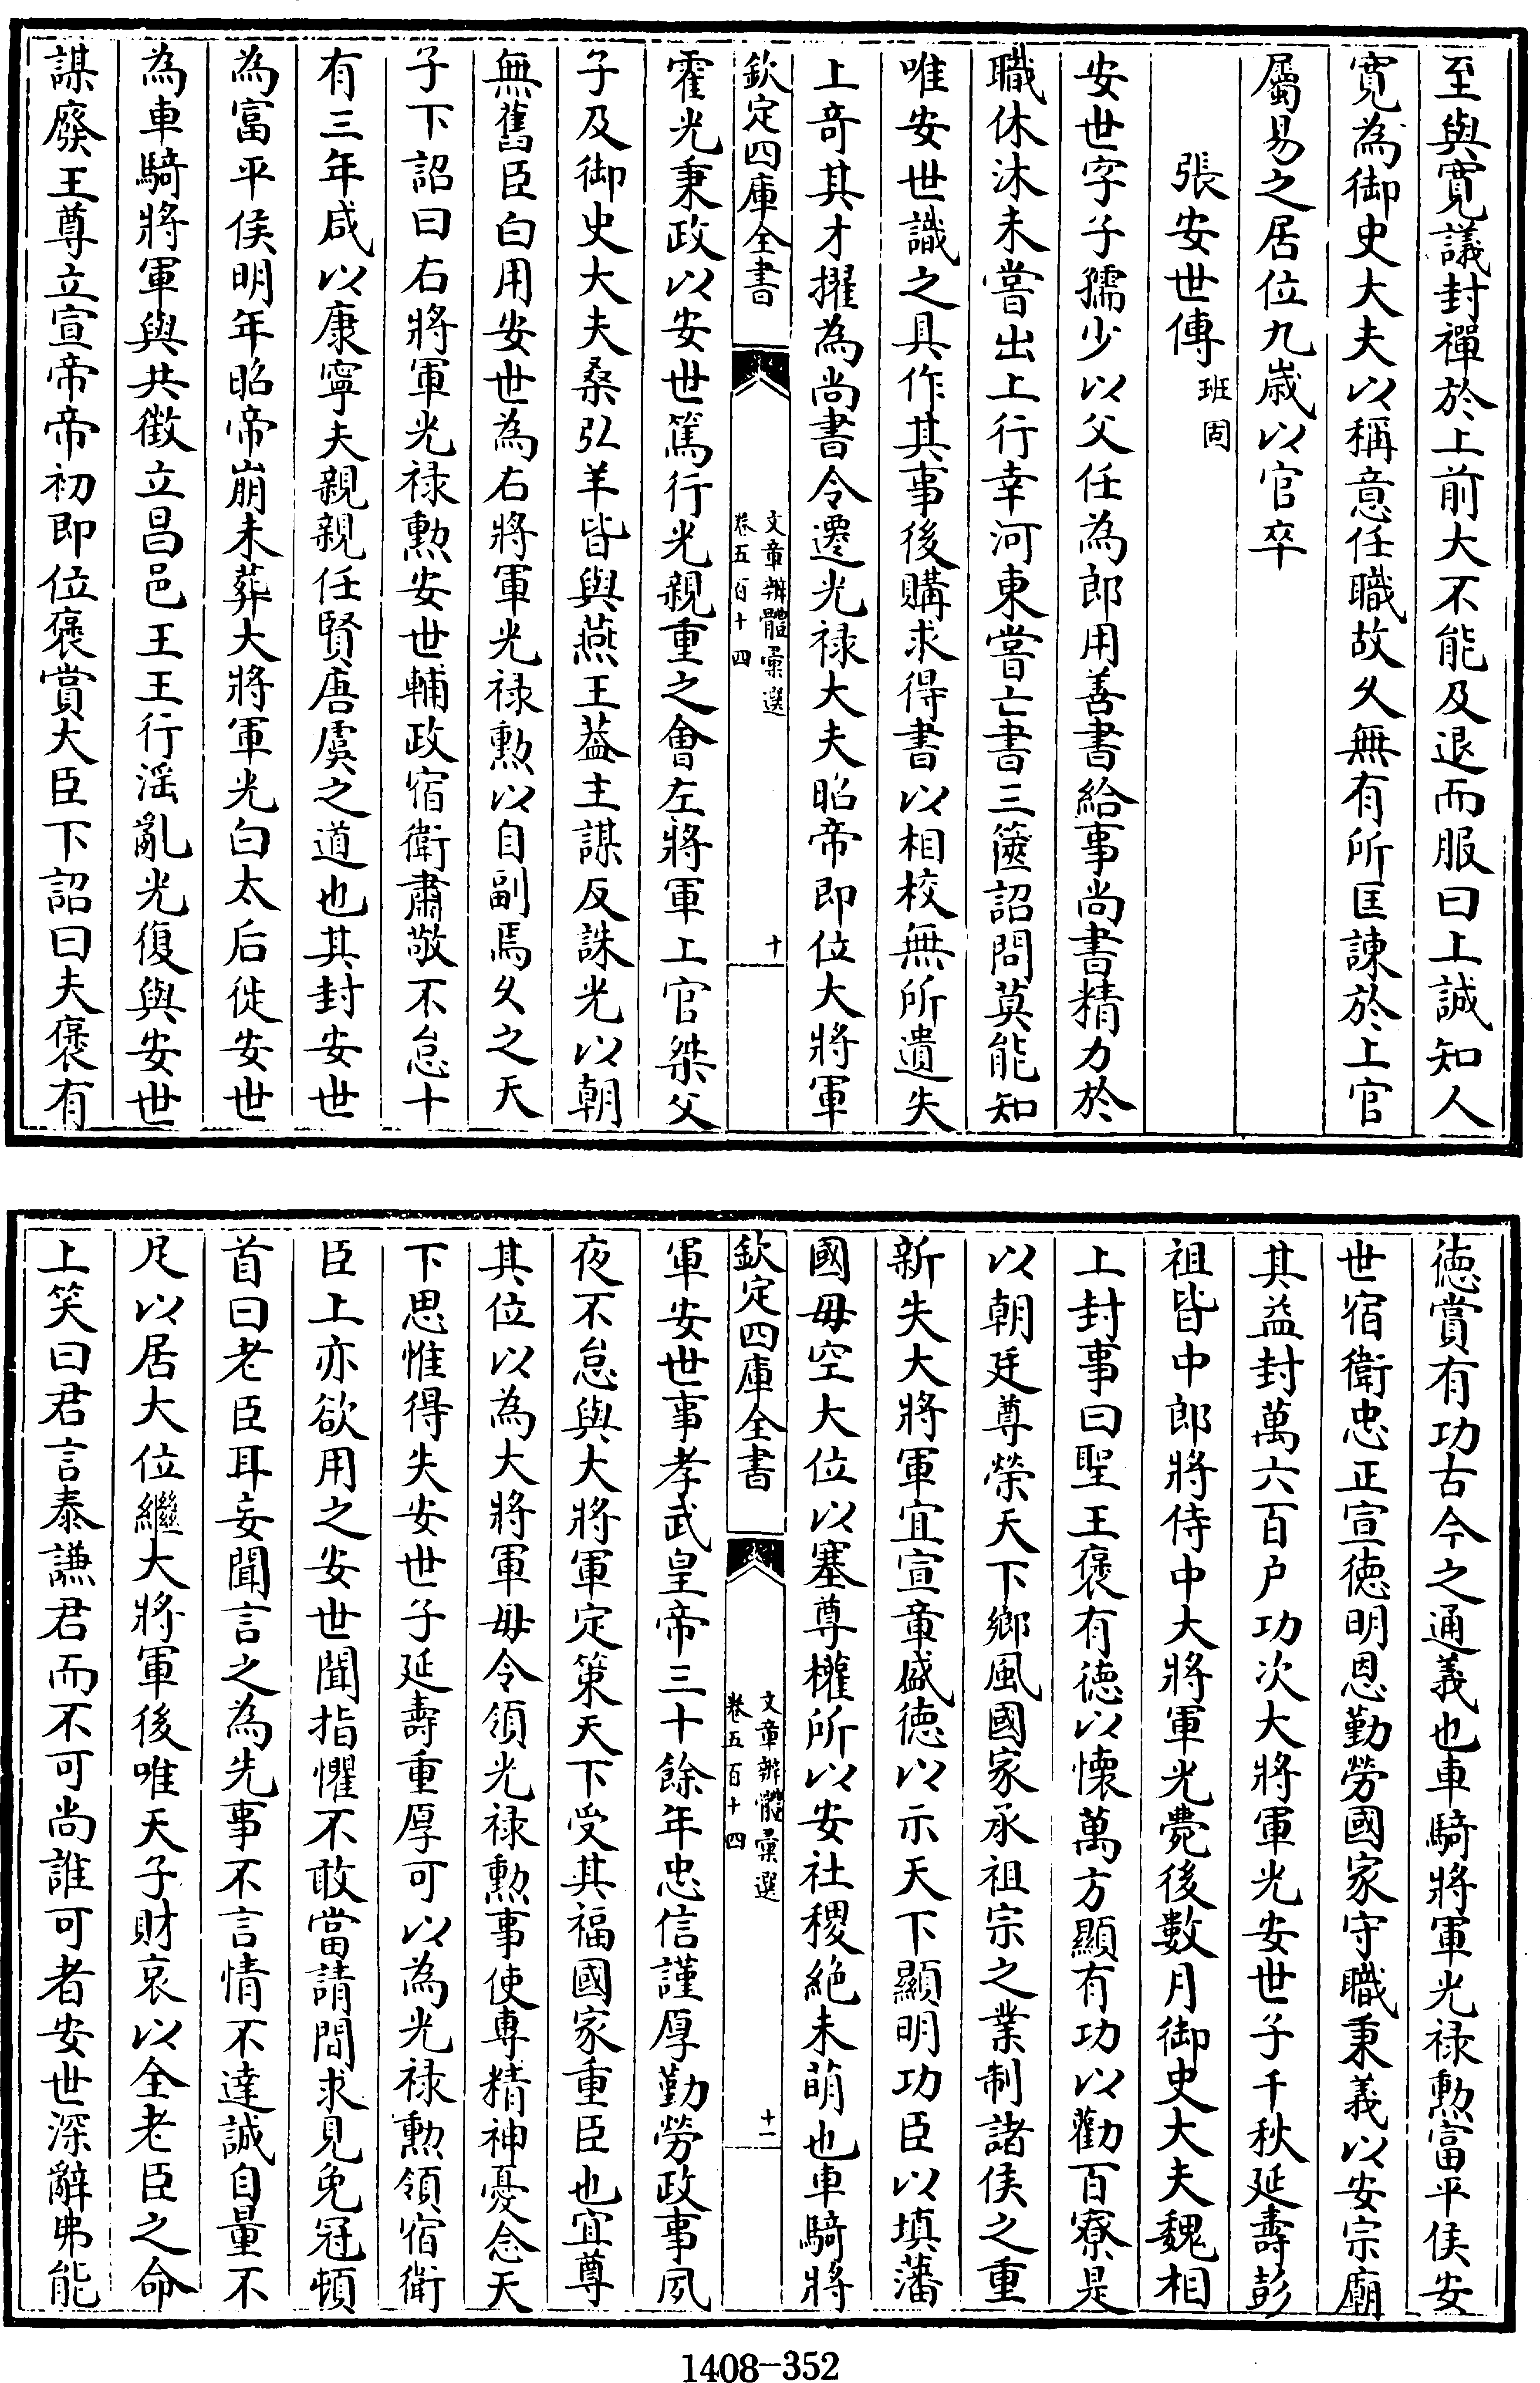 至與寛議封禪於上前大不能及退而服曰上誠知人
寛為御史大夫以稱意任職故久無有所匡諫於上官
屬易之居位九歳以官卒
張安世傳班固
安世字子孺少以父任為郎用善書給事尚書精力於
職休沐未嘗出上行幸河東嘗亡書三篋詔問莫能知
唯安世識之具作其事後購求得書以相校無所遺失
上奇其才擢為尚書令遷光祿大夫昭帝即位大將軍
欽定四庫全書
文章辨體彙選
卷五百十四
十
霍光秉政以安世篤行光親重之會左將軍上官桀父
子及御史大夫桑弘羊皆與燕王葢主謀反誅光以朝
無舊臣白用安世為右將軍光祿勲以自副焉久之天
子下詔曰右將軍光祿勲安世輔政宿衛肅敬不怠十
有三年咸以康寧夫親親任賢唐虞之道也其封安世
為富平侯明年昭帝崩未葬大將軍光白太后徙安世
為車騎將軍與共徵立昌邑王王行滛亂光復與安世
謀廢王尊立宣帝帝初即位褒賞大臣下詔曰夫褒有
徳賞有功古今之通義也車騎將軍光祿勲富平侯安
世宿衛忠正宣徳明恩勤勞國家守職秉義以安宗廟
其益封萬六百户功次大將軍光安世子千秋延壽彭
祖皆中郎將侍中大將軍光薨後數月御史大夫魏相
上封事曰聖王褒有徳以懐萬方顯有功以勸百寮是
以朝廷尊榮天下鄉風國家承祖宗之業制諸侯之重
新失大將軍宜宣章盛徳以示天下顯明功臣以填藩
國毋空大位以塞尊權所以安社稷絶未萌也車騎將
欽定四庫全書
文章辨體彙選
卷五百十四
十一
軍安世事孝武皇帝三十餘年忠信謹厚勤勞政事夙
夜不怠與大將軍定策天下受其福國家重臣也宜尊
其位以為大將軍毋令領光祿勲事使專精神憂念天
下思惟得失安世子延壽重厚可以為光祿勲領宿衛
臣上亦欲用之安世聞指懼不敢當請間求見免冠頓
首曰老臣耳妄聞言之為先事不言情不達誠自量不
足以居大位繼大將軍後唯天子財哀以全老臣之命
上笑曰君言泰謙君而不可尚誰可者安世深辭弗能
1408-352